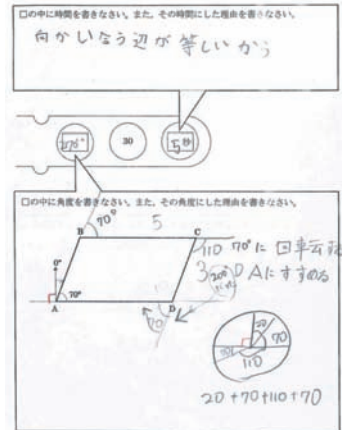 □の中に時間を書きなさい。また、その時間にした理由を書きなさい。
向かいなう辺が等しいから
270°
30
5秒
□の中に角度を書きなさい。また、その角度にした理由を書きなさい。
70°
5
B
C
110 70°に回転
3
DAにすすめる
0°
70°
A
D
70
20
70
110
20+70+110+70